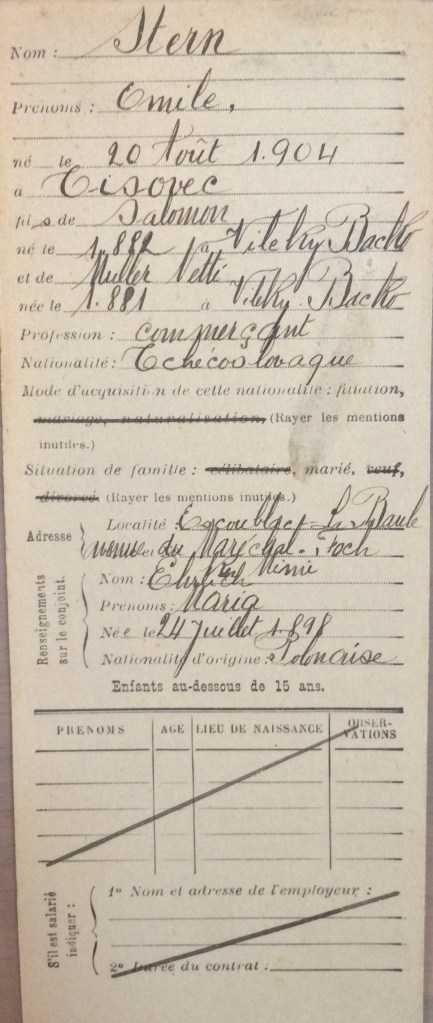 Nom : Stern
Prénoms : Emile,
né le 20 Août 1.904
à Tisovec
fils de Salomon
né le 1.882 à Viteky Backo
et de Muller Netti
née le 1.881 à Viteky Backo
Profession : commerçant
Nationalité : Tchécoslovaque
Mode d'acquisition de cette nationalité : filiation,
mariage, naturalisation, (Rayer les mentions
inutiles.)
Situation de famille : célibataire, marié, veuf,
divorcé (Rayer les mentions inutiles.)
Adresse
Localité : Escoublac-La Baule
du Maréchal-Foch
Renseignements
sur le conjoint.
Nom : Ehrlich
Prénoms : Maria
Née le 24 Juillet 1.898
Nationalité d'origine : Polonaise
Enfants au-dessous de 15 ans.
PRÉNOMS AGE LIEU DE NAISSANCE OBSER-
VATIONS
S'il est salarié
indiquer :
1° Nom et adresse de l'employeur :
2° Durée du contrat :